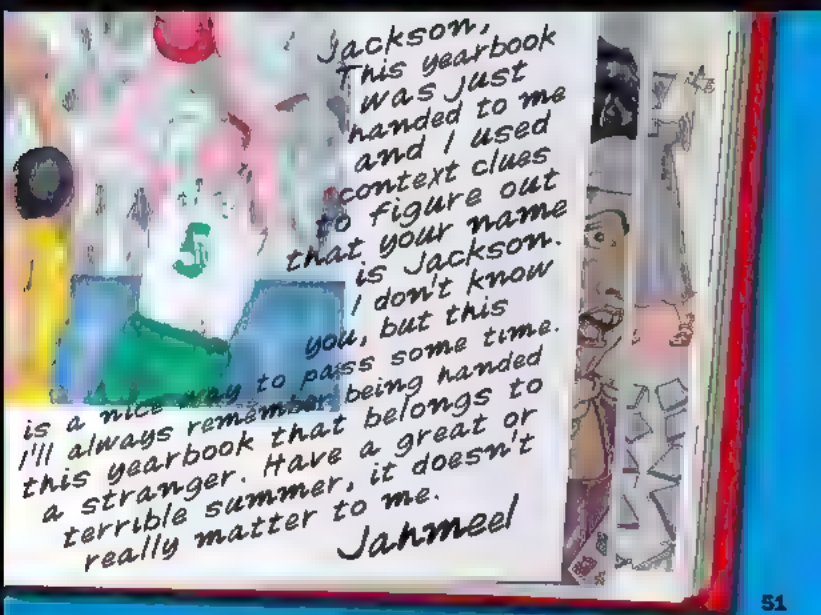 Jackson,
This yearbook
was just
handed to me
and I used
context clues
to figure out
that your name
is Jackson.
I don't know
you, but this
is a nice way to pass some time.
I'll always remember being handed
this yearbook that belongs to
a stranger. Have a great or
terrible summer, it doesn't
really matter to me.
Jahmeel
5
51